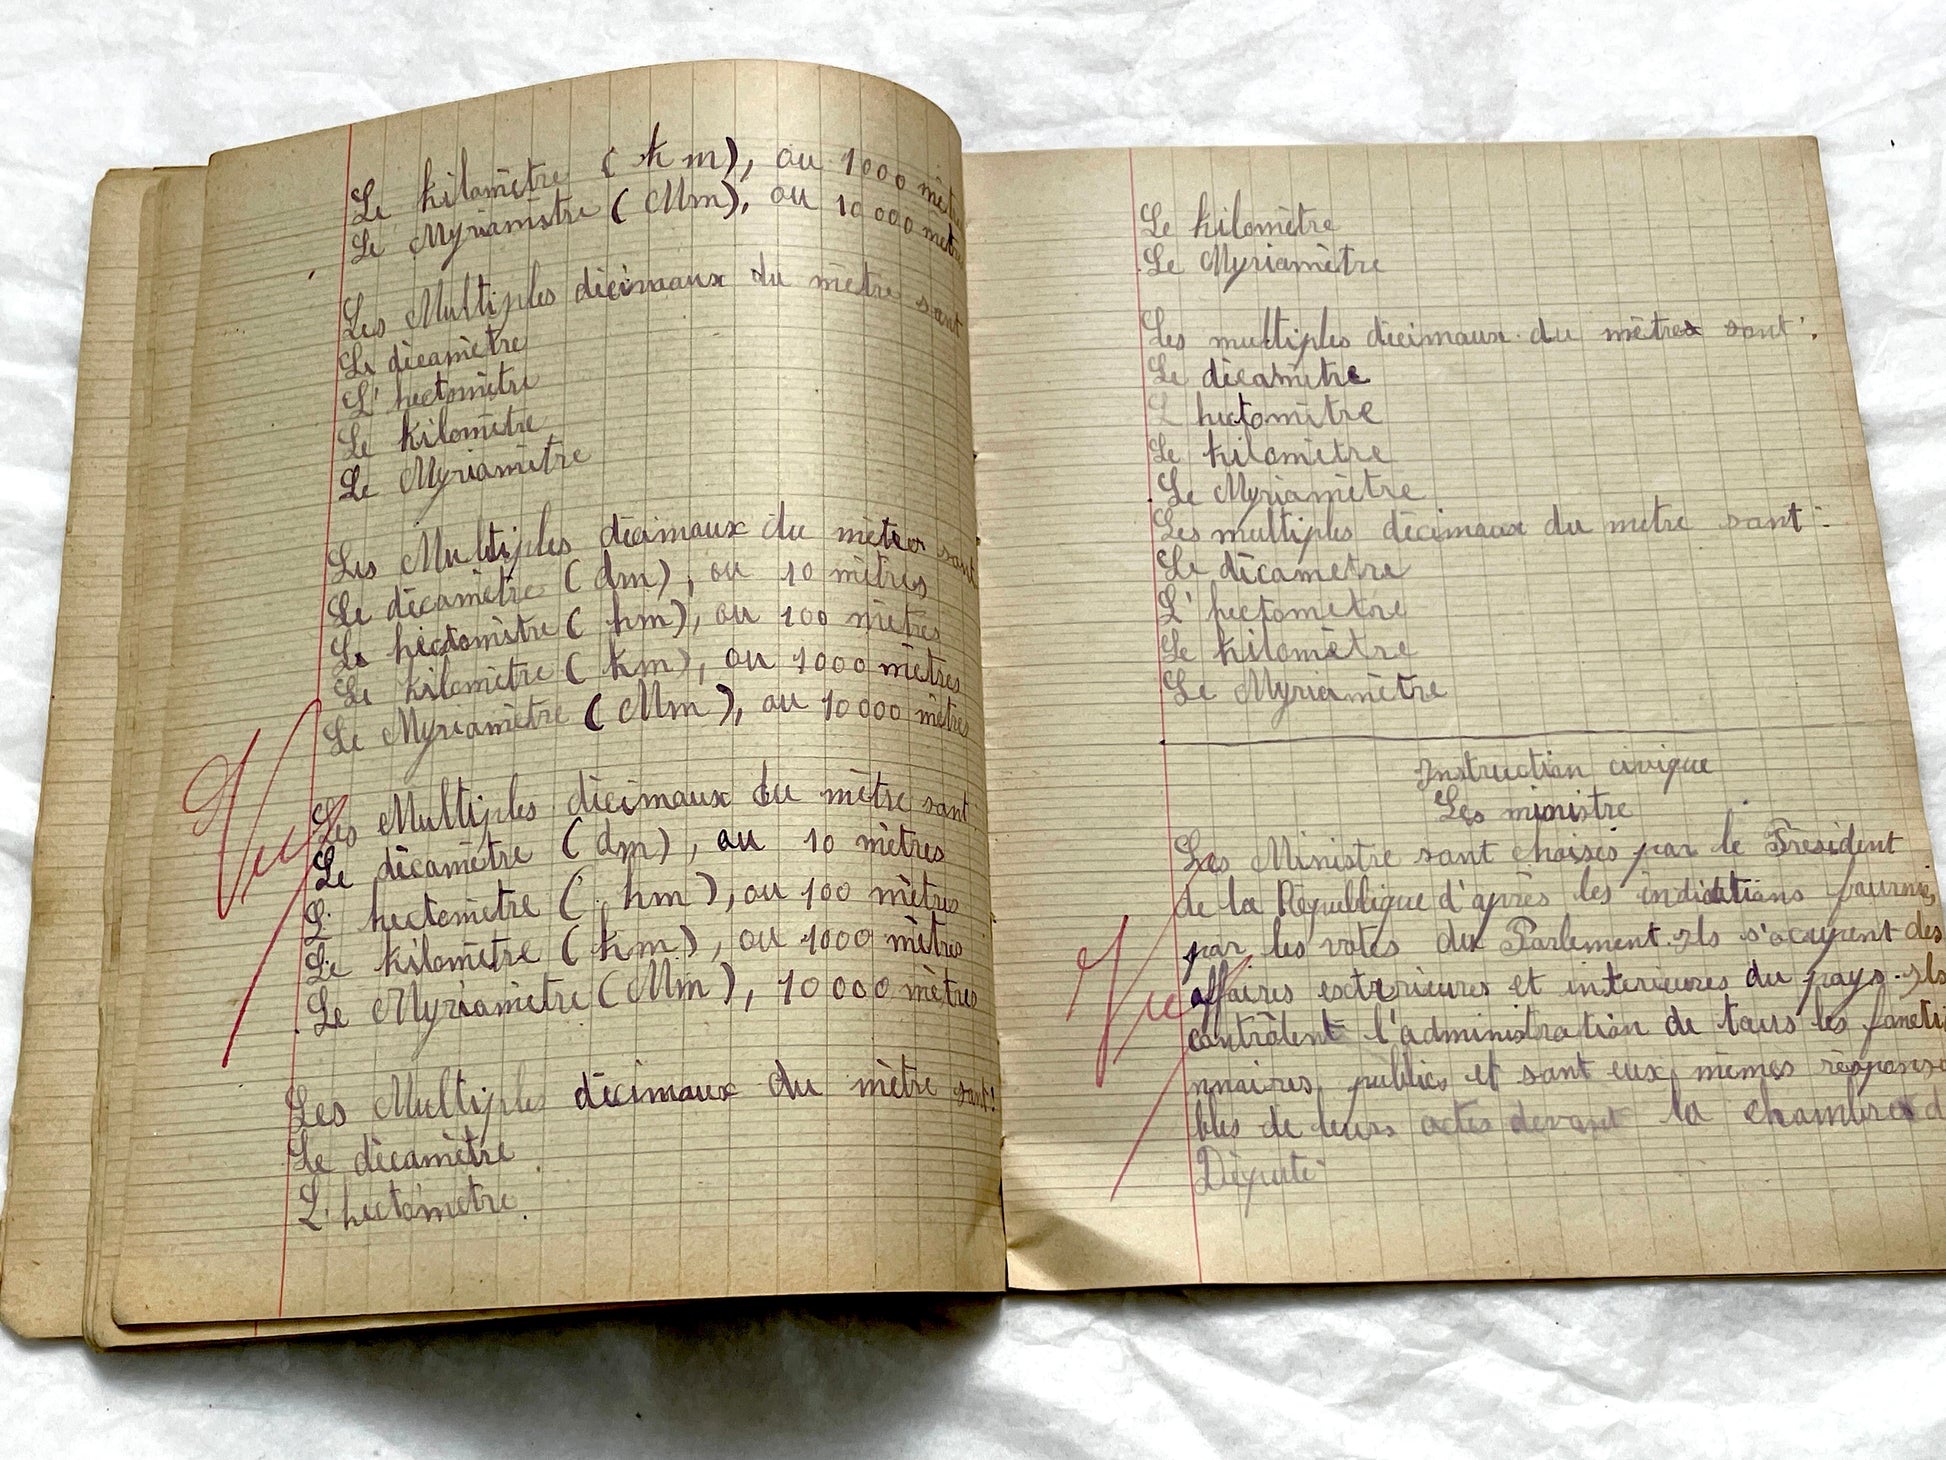 Le kilomètre (km), ou 1000 mètr
Le Myriamètre (Mm), ou 10000 metre
Les Multiples décimaux du mètre sont
Le décamètre
L' hectomètre
Le kilomètre
Le Myriamètre
Les Multiples décimaux du mètre sont
Le décamètre (dm), ou 10 mètres
Le hectomètre (hm), ou 100 mètres
Le kilomètre (km), ou 1000 mètres
Le Myriamètre (Mm), ou 10000 mètres
Vu
Les Multiples décimaux du mètre sont
Le décamètre (dm), ou 10 mètres
L' hectometre (hm), ou 100 mètres
Le kilomètre (km), ou 1000 mètres
Le Myriamètre (Mm), 10000 mètres
Les Multiples décimaux du mètre sont:
Le décamètre
L' hectomètre.
Le kilomètre
Le Myriamètre
Les multiples décimaux du mètre sont:
Le décamètre
L hectomètre
Le kilomètre
Le Myriamètre
Les multiples décimaux du metre sont:
Le décametre
L' hectometre
Le kilomètre
Le Myriamètre
Instruction civique
Les ministre
Les Ministre sont choisis par le Président
de la République d'après les indications fournies
par les votes du Parlement. Ils s'ocupent des
affaires exterieures et interieures du pays. Ils
Vu
contrôlent l'administration de tous les foncti
nnaires publics et sont eux mêmes responsa
bles de leurs actes devant la chambre d
Député